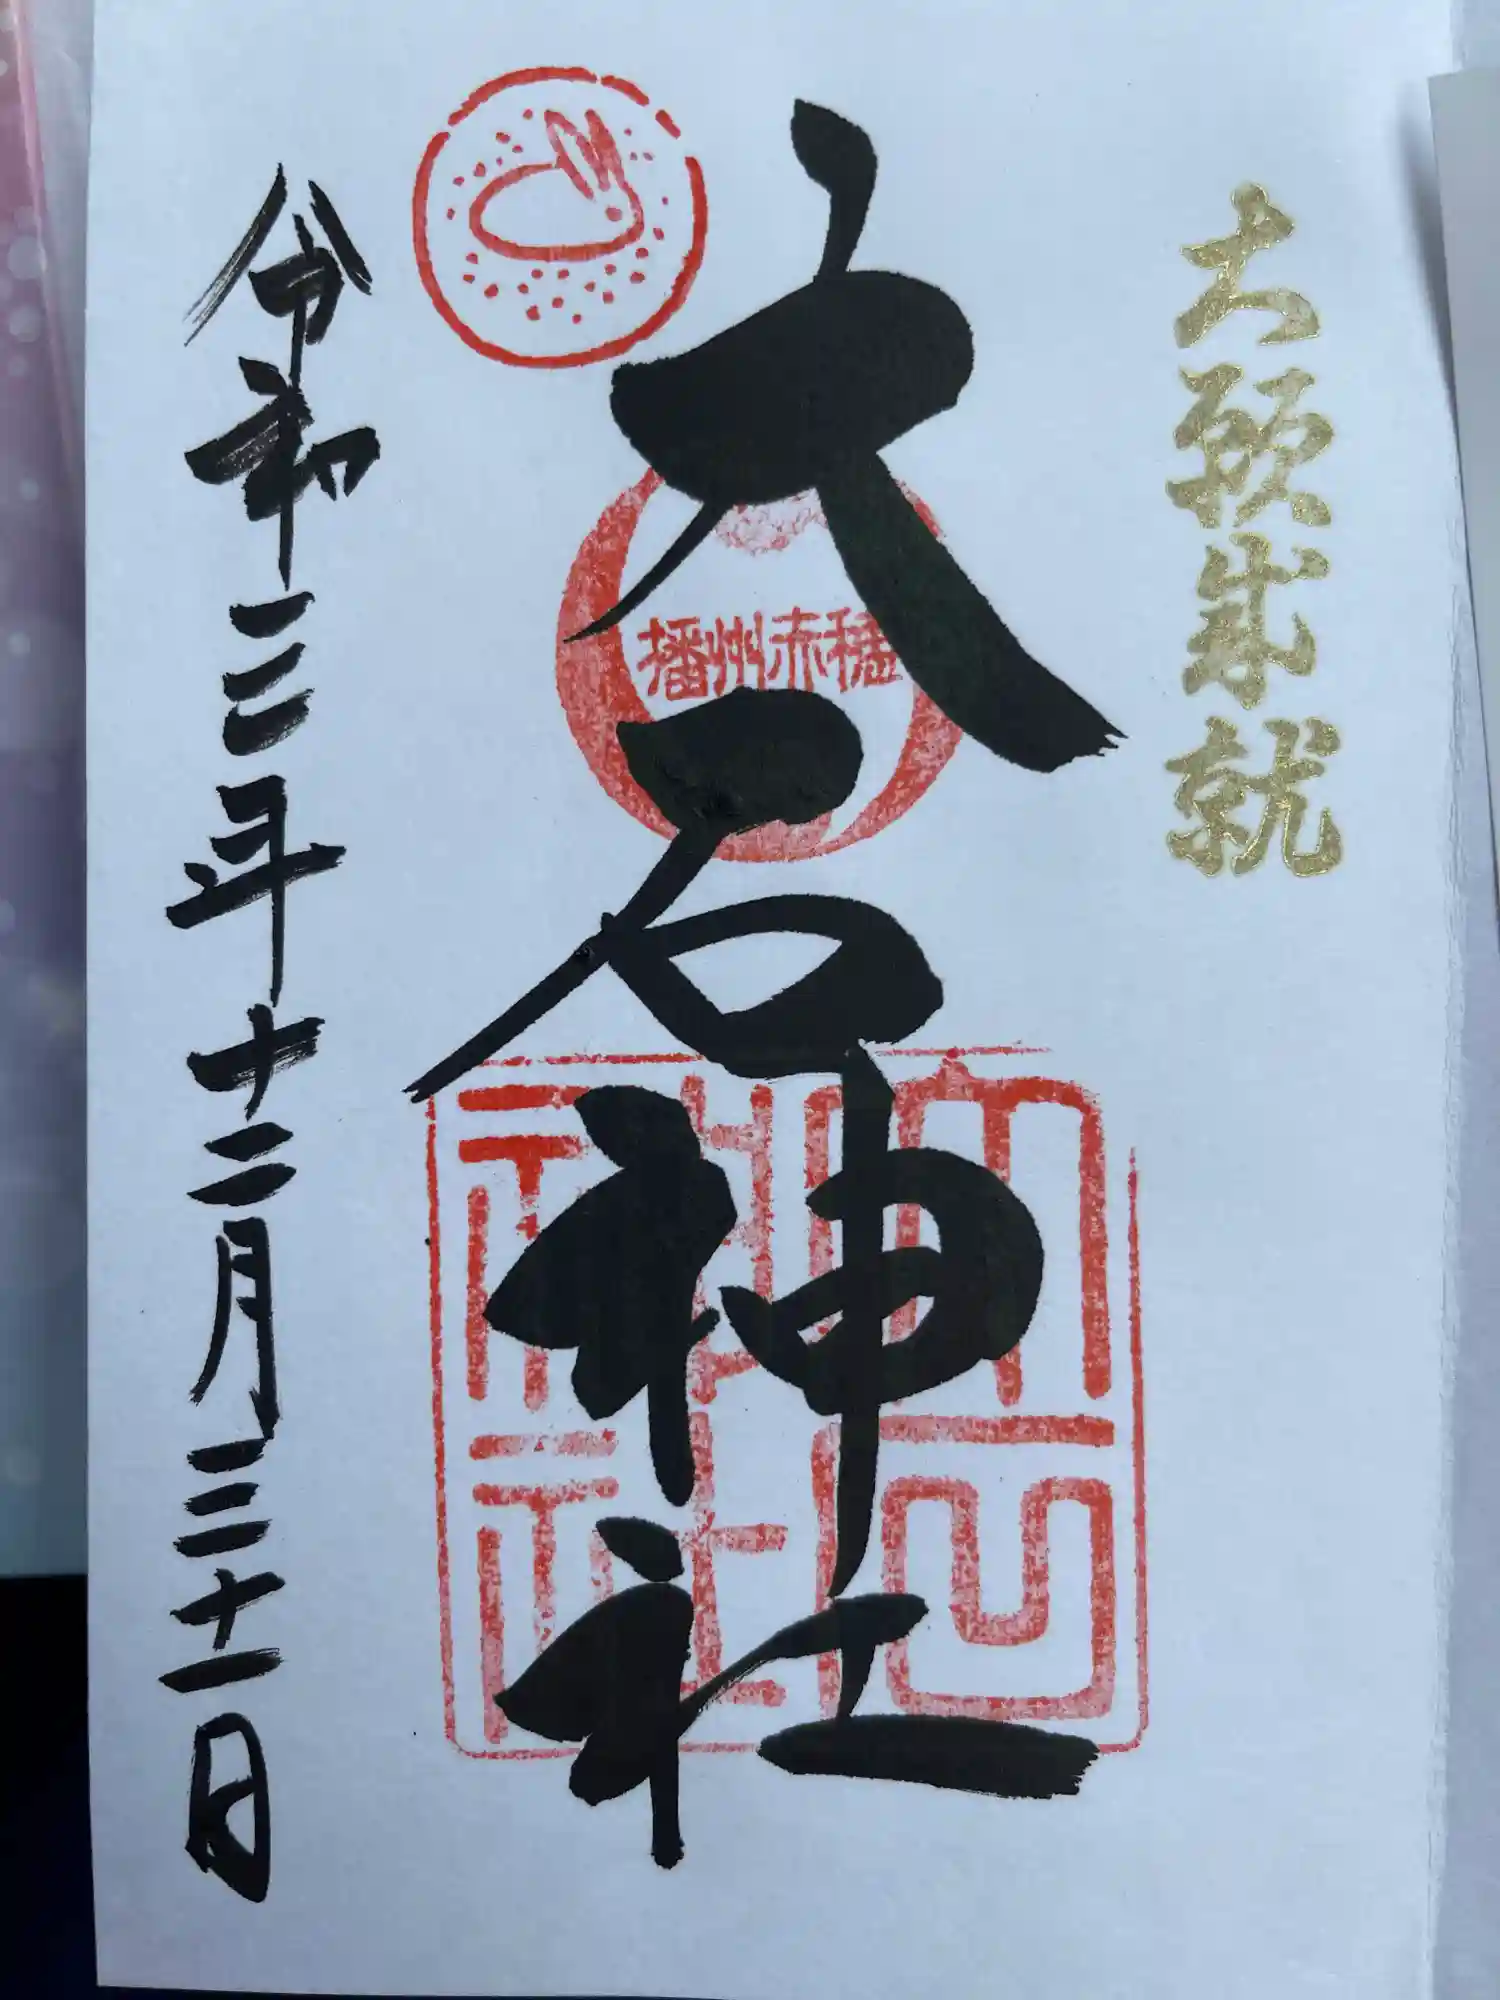 大願成就
播州赤穂
大石神社
大石神社
令和三年十二月三十一日